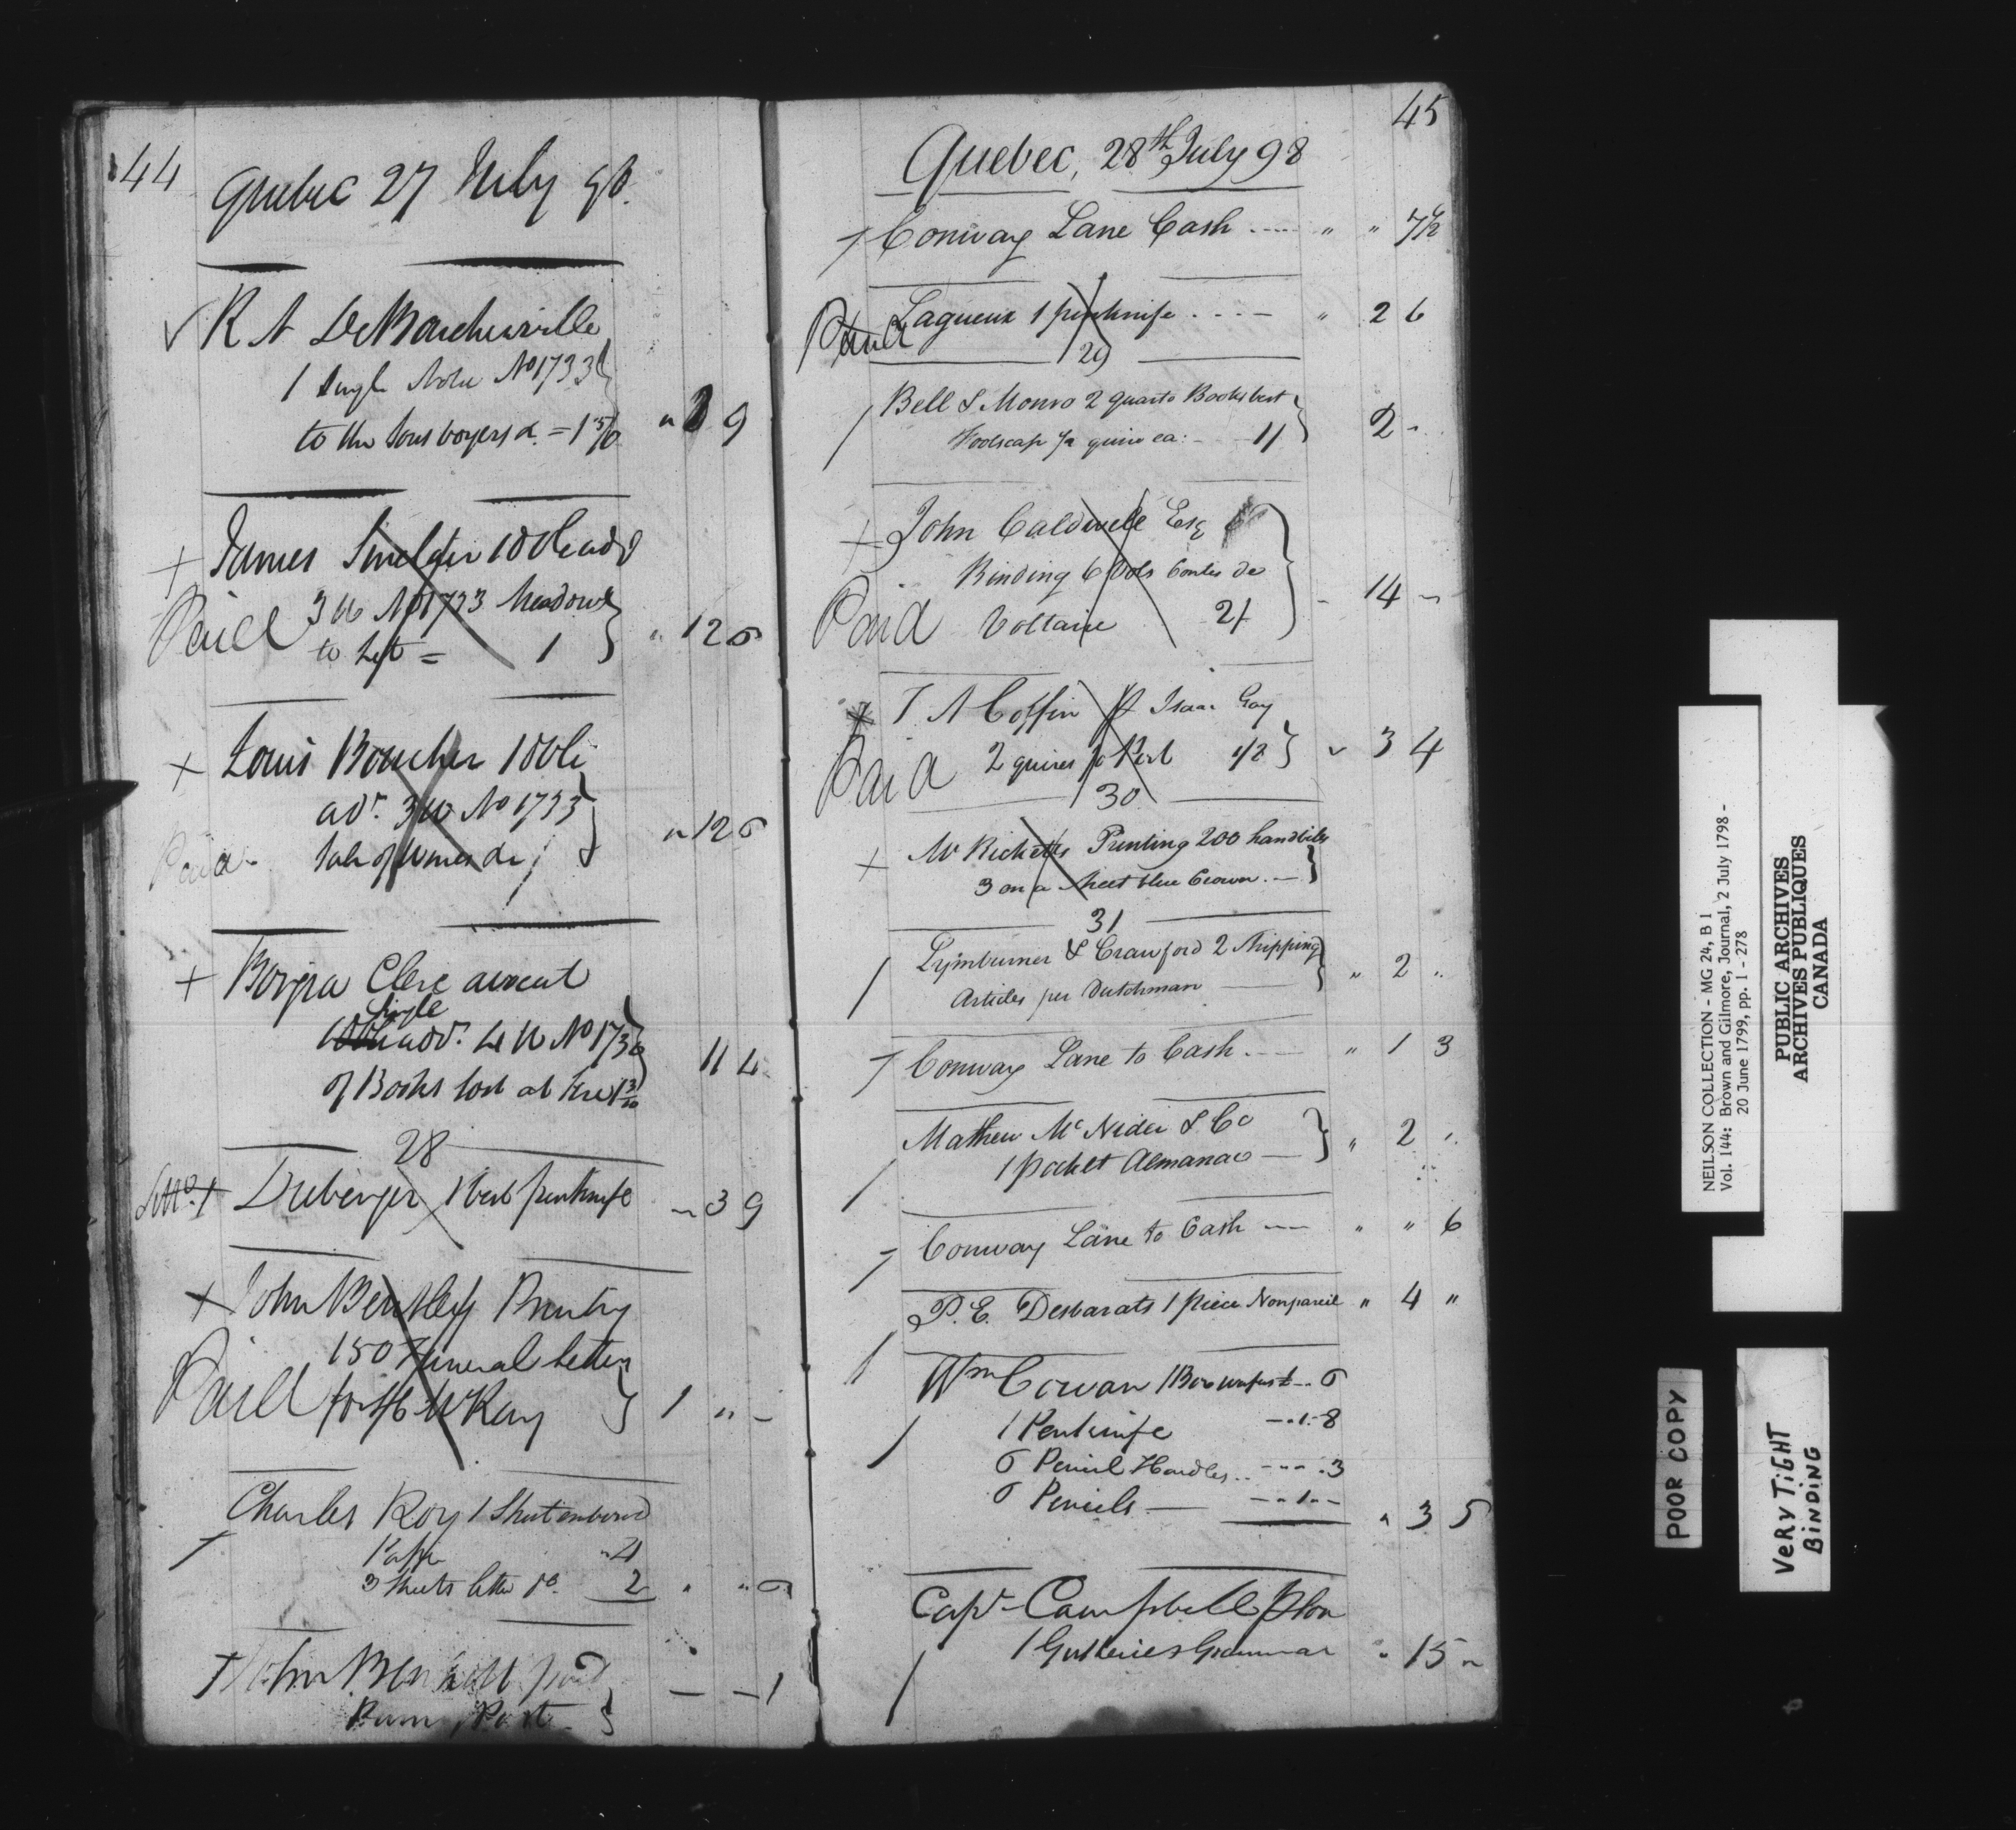 44
Quebec 27 July 98.
R A De Boucherville
1 Single Notice No 1733
to the = 1 5/6 " 2 9
James 10 li adv
3 W No 1733 Meadows
to Let = 1 " 12 6
Paid
Louis Boucher 10 li
adv. 3 W No 1733
Sale of " 12 6
Paid
Borgia Clerc avocat
Single
adv. 4 W No 1736
of Books lost at 11 4
28
Duberger 1 best penknife " 3 9
John Bentley Printg
150 Funeral Letters
for McKay 1 " -
Paid
Charles Roy 1 Sheet
Paper " 4
3 Sheets letter do. 2 " " 6
John paid
- - 1
45
Quebec, 28th July 98
Conway Lane Cash .... " " 7 1/2
Lagueux 1 penknife .... " 2 6
Paid
29
Bell & Monro 2 quarto Books best
Foolscap 1/2 quire ea: - 1/ 2 "
John Caldwell Esq
Binding 6 Vols Contes de
Voltaire 2/ - 14 -
Paid
T A Coffin p Isaac Gay
2 quires po Post 1/8 " 3 4
Paid
30
Mr Ricketts Printing 200 handbills
3 on a sheet blue Crown. -
31
Lymburner & Crawford 2 Shipping
Articles per Dutchman " 2 "
Conway Lane to Cash ... " 1 3
Mathew McNider & Co
1 Pocket Almanac - " 2 "
Conway Lane to Cash - " " 6
P. E. Desbarats 1 piece Nonpareil " 4 "
Wm Cowan 6
1 Penknife - " 1 " 8
6 Pencil Handles .. - - - . 3
6 Pencils - - " 1 " -
" 3 5
Capt Campbell
1 Guthries Grammar " 15 "
NEILSON COLLECTION - MG 24, B 1
Vol. 144: Brown and Gilmore, Journal, 2 July 1798 -
20 June 1799, pp. 1 - 278
PUBLIC ARCHIVES
ARCHIVES PUBLIQUES
CANADA
POOR COPY
VERY TIGHT
BINDING